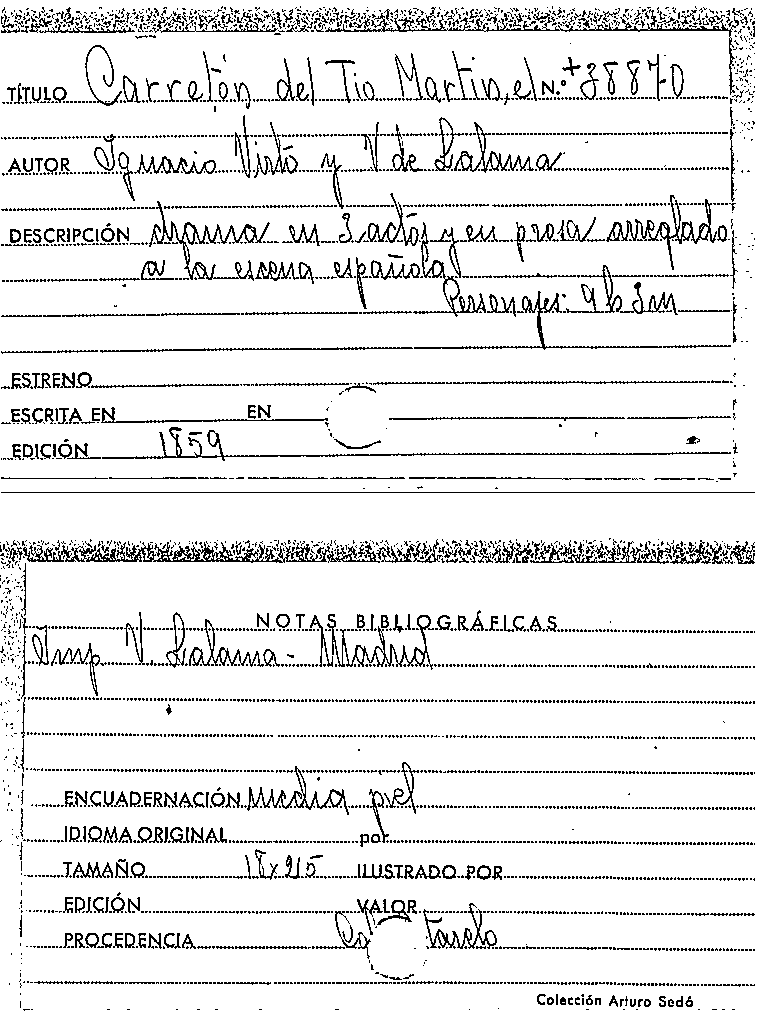 TÍTULO Carretón del Tio Martin, el N.º +38870
AUTOR Ignacio Virto y V de Lalama
DESCRIPCIÓN drama en 3 actos y en prosa arreglado
a la escena española
Personajes: 9 h 3 m
ESTRENO
ESCRITA EN EN
EDICIÓN 1859
NOTAS BIBLIOGRÁFICAS
Imp V. Lalama - Madrid
ENCUADERNACIÓN media piel
IDIOMA ORIGINAL por
TAMAÑO ILUSTRADO POR
EDICIÓN VALOR
PROCEDENCIA Co tarelo
Colección Arturo Sedó